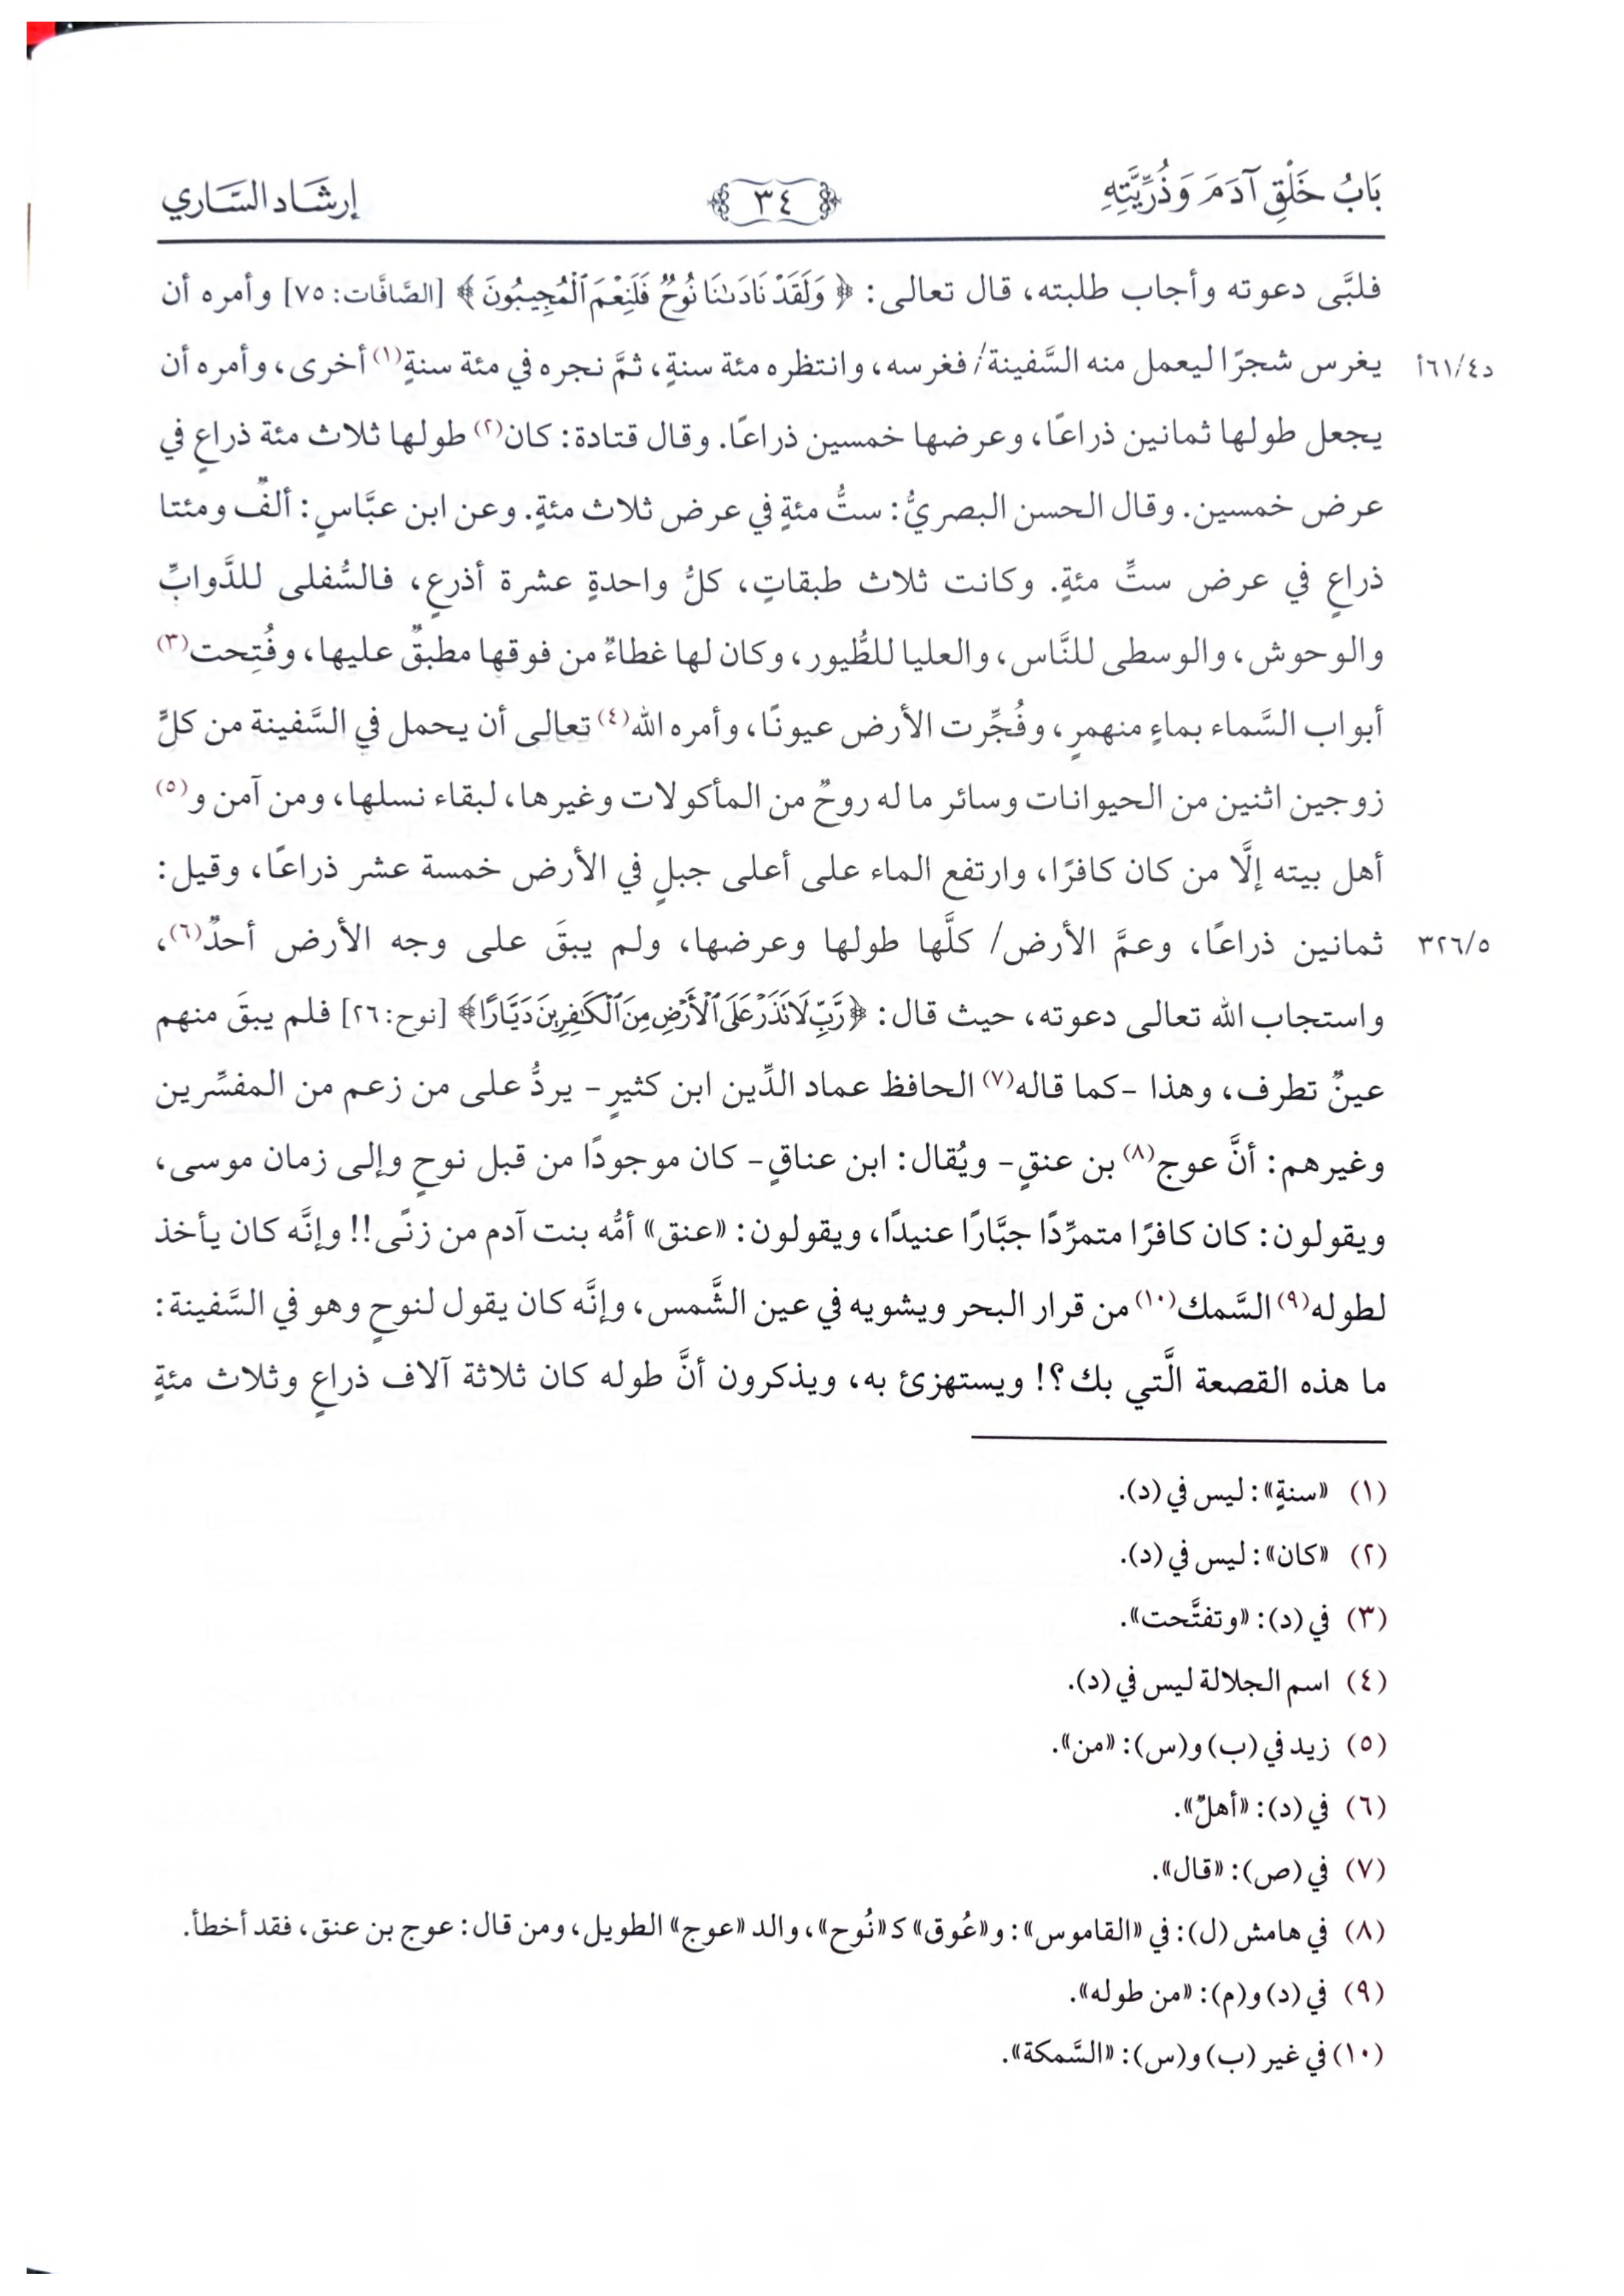 بَابُ خَلْقِ آدَمَ وَذُرِّيَّتِهِ
٣٤
إرشَاد السَّاري
فلبَّى دعوته وأجاب طلبته، قال تعالى: ﴿وَلَقَدْ نَادَىٰنَا نُوحٌ فَلَنِعْمَ ٱلْمُجِيبُونَ﴾ [الصَّافَّات: ٧٥] وأمره أن
د٤/٦١أ
يغرس شجرًا ليعمل منه السَّفينة/ فغرسه، وانتظره مئة سنةٍ، ثمَّ نجره في مئة سنةٍ(١) أخرى، وأمره أن
يجعل طولها ثمانين ذراعًا، وعرضها خمسين ذراعًا. وقال قتادة: كان(٢) طولها ثلاث مئة ذراعٍ في
عرض خمسين. وقال الحسن البصريُّ: ستُّ مئةٍ في عرض ثلاث مئةٍ. وعن ابن عبَّاسٍ: ألفٌ ومئتا
ذراعٍ في عرض ستِّ مئةٍ. وكانت ثلاث طبقاتٍ، كلُّ واحدةٍ عشرة أذرعٍ، فالسُّفلى للدَّوابِّ
والوحوش، والوسطى للنَّاس، والعليا للطُّيور، وكان لها غطاءٌ من فوقها مطبقٌ عليها، وفُتِحت(٣)
أبواب السَّماء بماءٍ منهمرٍ، وفُجِّرت الأرض عيونًا، وأمره الله(٤) تعالى أن يحمل في السَّفينة من كلٍّ
زوجين اثنين من الحيوانات وسائر ما له روحٌ من المأكولات وغيرها، لبقاء نسلها، ومن آمن و(٥)
أهل بيته إلَّا من كان كافرًا، وارتفع الماء على أعلى جبلٍ في الأرض خمسة عشر ذراعًا، وقيل:
٣٢٦/٥
ثمانين ذراعًا، وعمَّ الأرض/ كلَّها طولها وعرضها، ولم يبقَ على وجه الأرض أحدٌ(٦)،
واستجاب الله تعالى دعوته، حيث قال: ﴿رَّبِّ لَا تَذَرْ عَلَى ٱلْأَرْضِ مِنَ ٱلْكَٰفِرِينَ دَيَّارًا﴾ [نوح: ٢٦] فلم يبقَ منهم
عينٌ تطرف، وهذا -كما قاله(٧) الحافظ عماد الدِّين ابن كثيرٍ- يردُّ على من زعم من المفسِّرين
وغيرهم: أنَّ عوج(٨) بن عنقٍ- ويُقال: ابن عناقٍ- كان موجودًا من قبل نوحٍ وإلى زمان موسى،
ويقولون: كان كافرًا متمرِّدًا جبَّارًا عنيدًا، ويقولون: «عنق» أمُّه بنت آدم من زنًى!! وإنَّه كان يأخذ
لطوله(٩) السَّمك(١٠) من قرار البحر ويشويه في عين الشَّمس، وإنَّه كان يقول لنوحٍ وهو في السَّفينة:
ما هذه القصعة الَّتي بك؟! ويستهزئ به، ويذكرون أنَّ طوله كان ثلاثة آلاف ذراعٍ وثلاث مئةٍ
(١) «سنةٍ»: ليس في (د).
(٢) «كان»: ليس في (د).
(٣) في (د): «وتفتَّحت».
(٤) اسم الجلالة ليس في (د).
(٥) زيد في (ب) و(س): «من».
(٦) في (د): «أهلٌ».
(٧) في (ص): «قال».
(٨) في هامش (ل): في «القاموس»: و«عُوق» كـ«نُوح»، والد «عوج» الطويل، ومن قال: عوج بن عنق، فقد أخطأ.
(٩) في (د) و(م): «من طوله».
(١٠) في غير (ب) و(س): «السَّمكة».